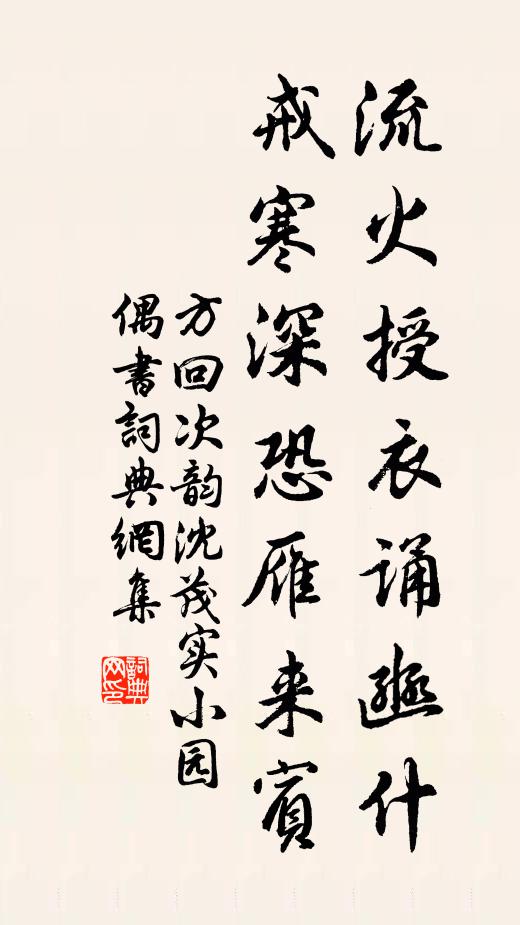 流火授衣诵豳什
戒寒深恐雁来賓
方回次韵沈茂实小园
偶書詞典網集
詞典网印